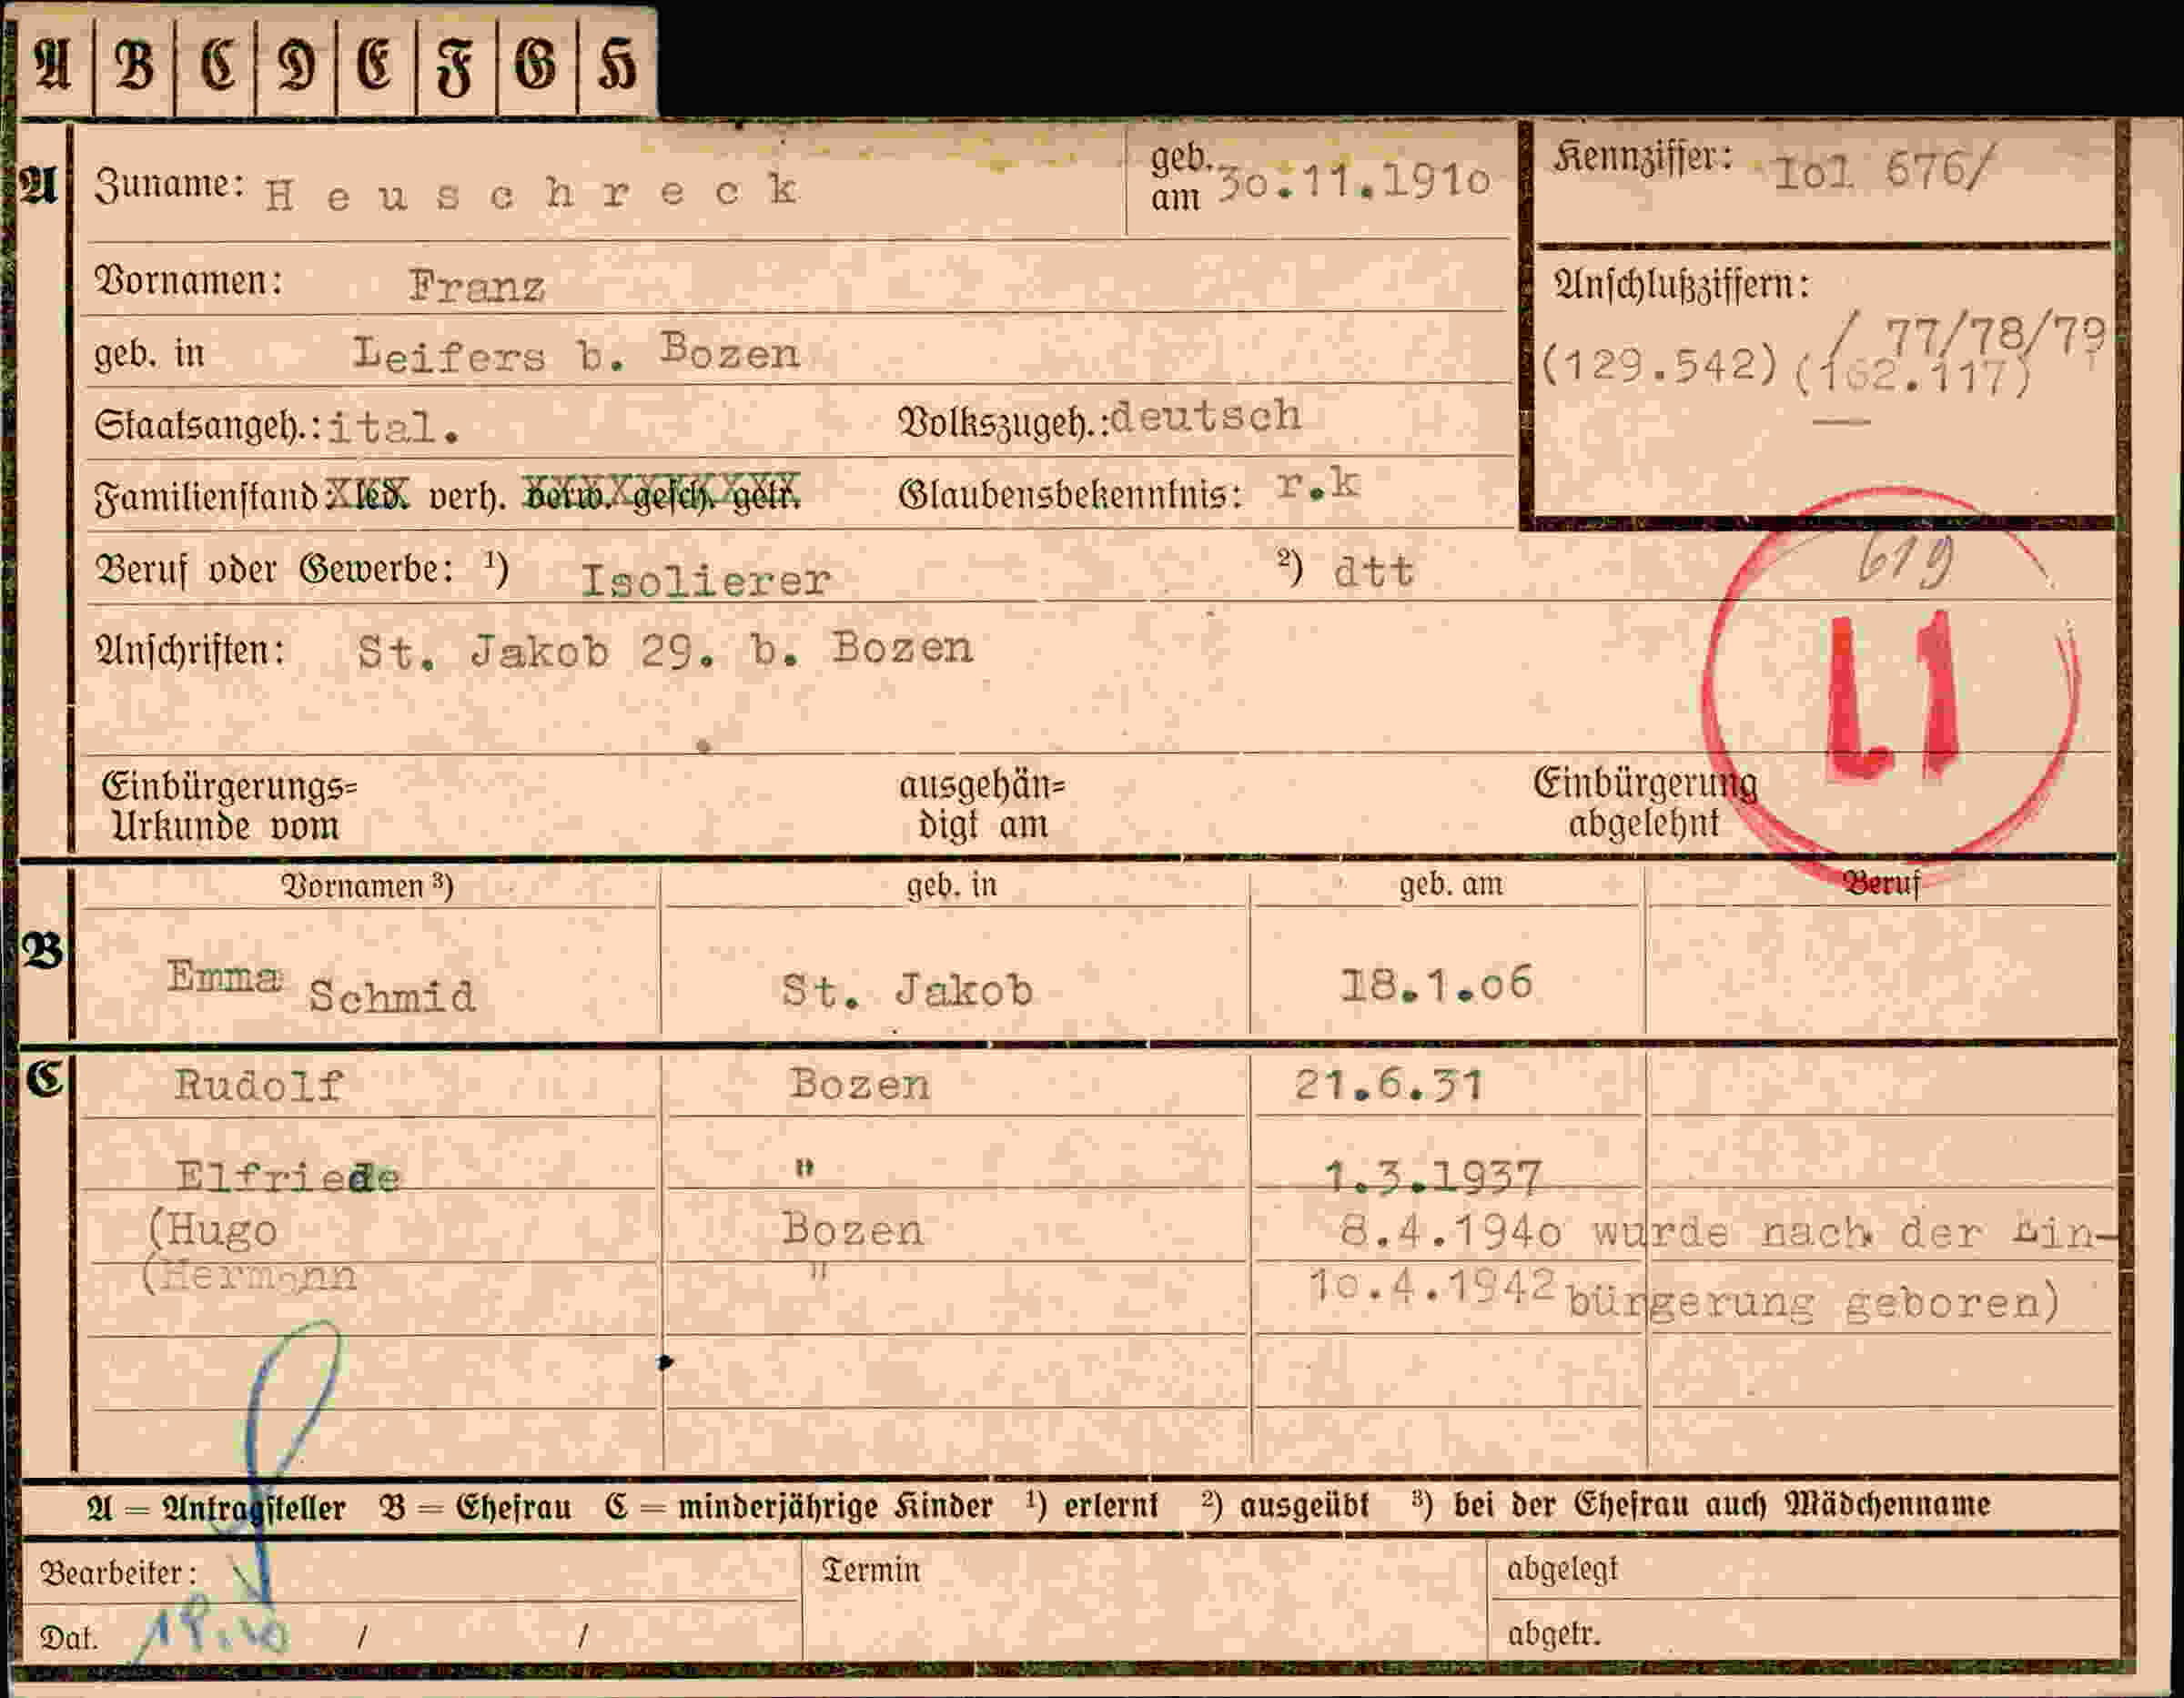 A B C D E F G H
A Zuname: Heuschreck geb. am 30.11.1910 Kennziffer: Iol 676/
Vornamen: Franz Anschlußziffern:
/ 77/78/79
geb. in Leifers b. Bozen (129.542) (162.117)
Staatsangeh.: ital. Volkszugeh.: deutsch
Familienstand: led. verh. verw. gesch. getr. Glaubensbekenntnis: r.k
619
Beruf oder Gewerbe: ¹) Isolierer ²) dtt
Anschriften: St. Jakob 29. b. Bozen
L1
Einbürgerungs= ausgehän= Einbürgerung
Urkunde vom digt am abgelehnt
Vornamen ³) geb. in geb. am Beruf
B Emma Schmid St. Jakob 18.1.06
C Rudolf Bozen 21.6.31
Elfriede " 1.3.1937
(Hugo Bozen 8.4.1940 wurde nach der Ein-
(Hermann " 10.4.1942 bürgerung geboren)
A = Antragsteller B = Ehefrau C = minderjährige Kinder ¹) erlernt ²) ausgeübt ³) bei der Ehefrau auch Mädchenname
Bearbeiter: Termin abgelegt
Dat. / / abgetr.